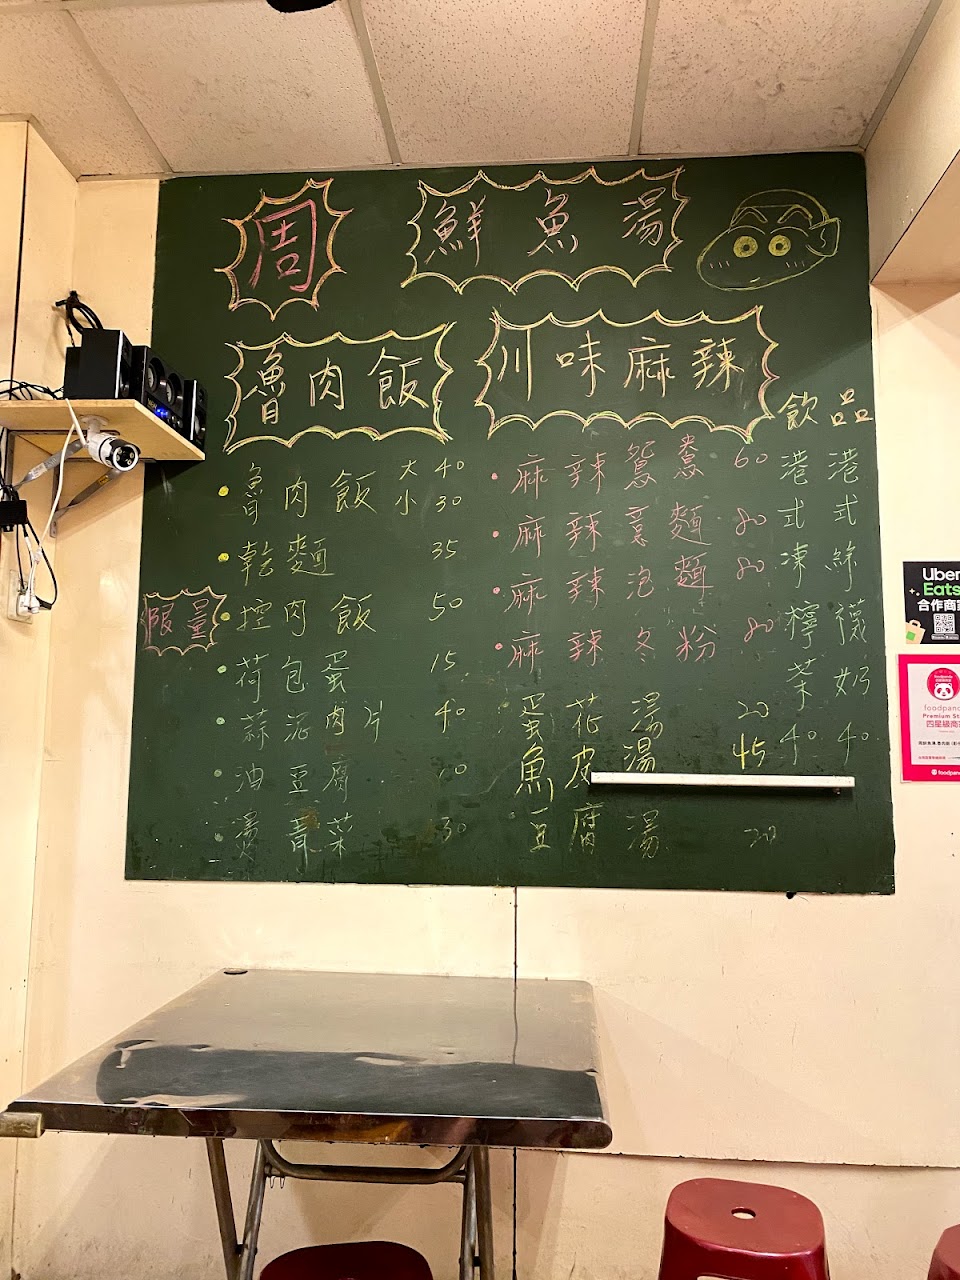 周 鮮魚湯
魯肉飯
魯肉飯 大 40
小 30
乾麵 35
限量
控肉飯 50
荷包蛋 15
蒜泥肉片 40
油豆腐 10
燙青菜 30
川味麻辣
麻辣鴛鴦 60
麻辣意麵 80
麻辣泡麵 80
麻辣冬粉 80
蛋花湯 20
魚皮湯 45
豆腐湯 20
飲品
港式凍檸茶 40
港式絲襪奶 40
Uber
Eats
合作商家
foodpanda
Premium St
四星級商
foodpand